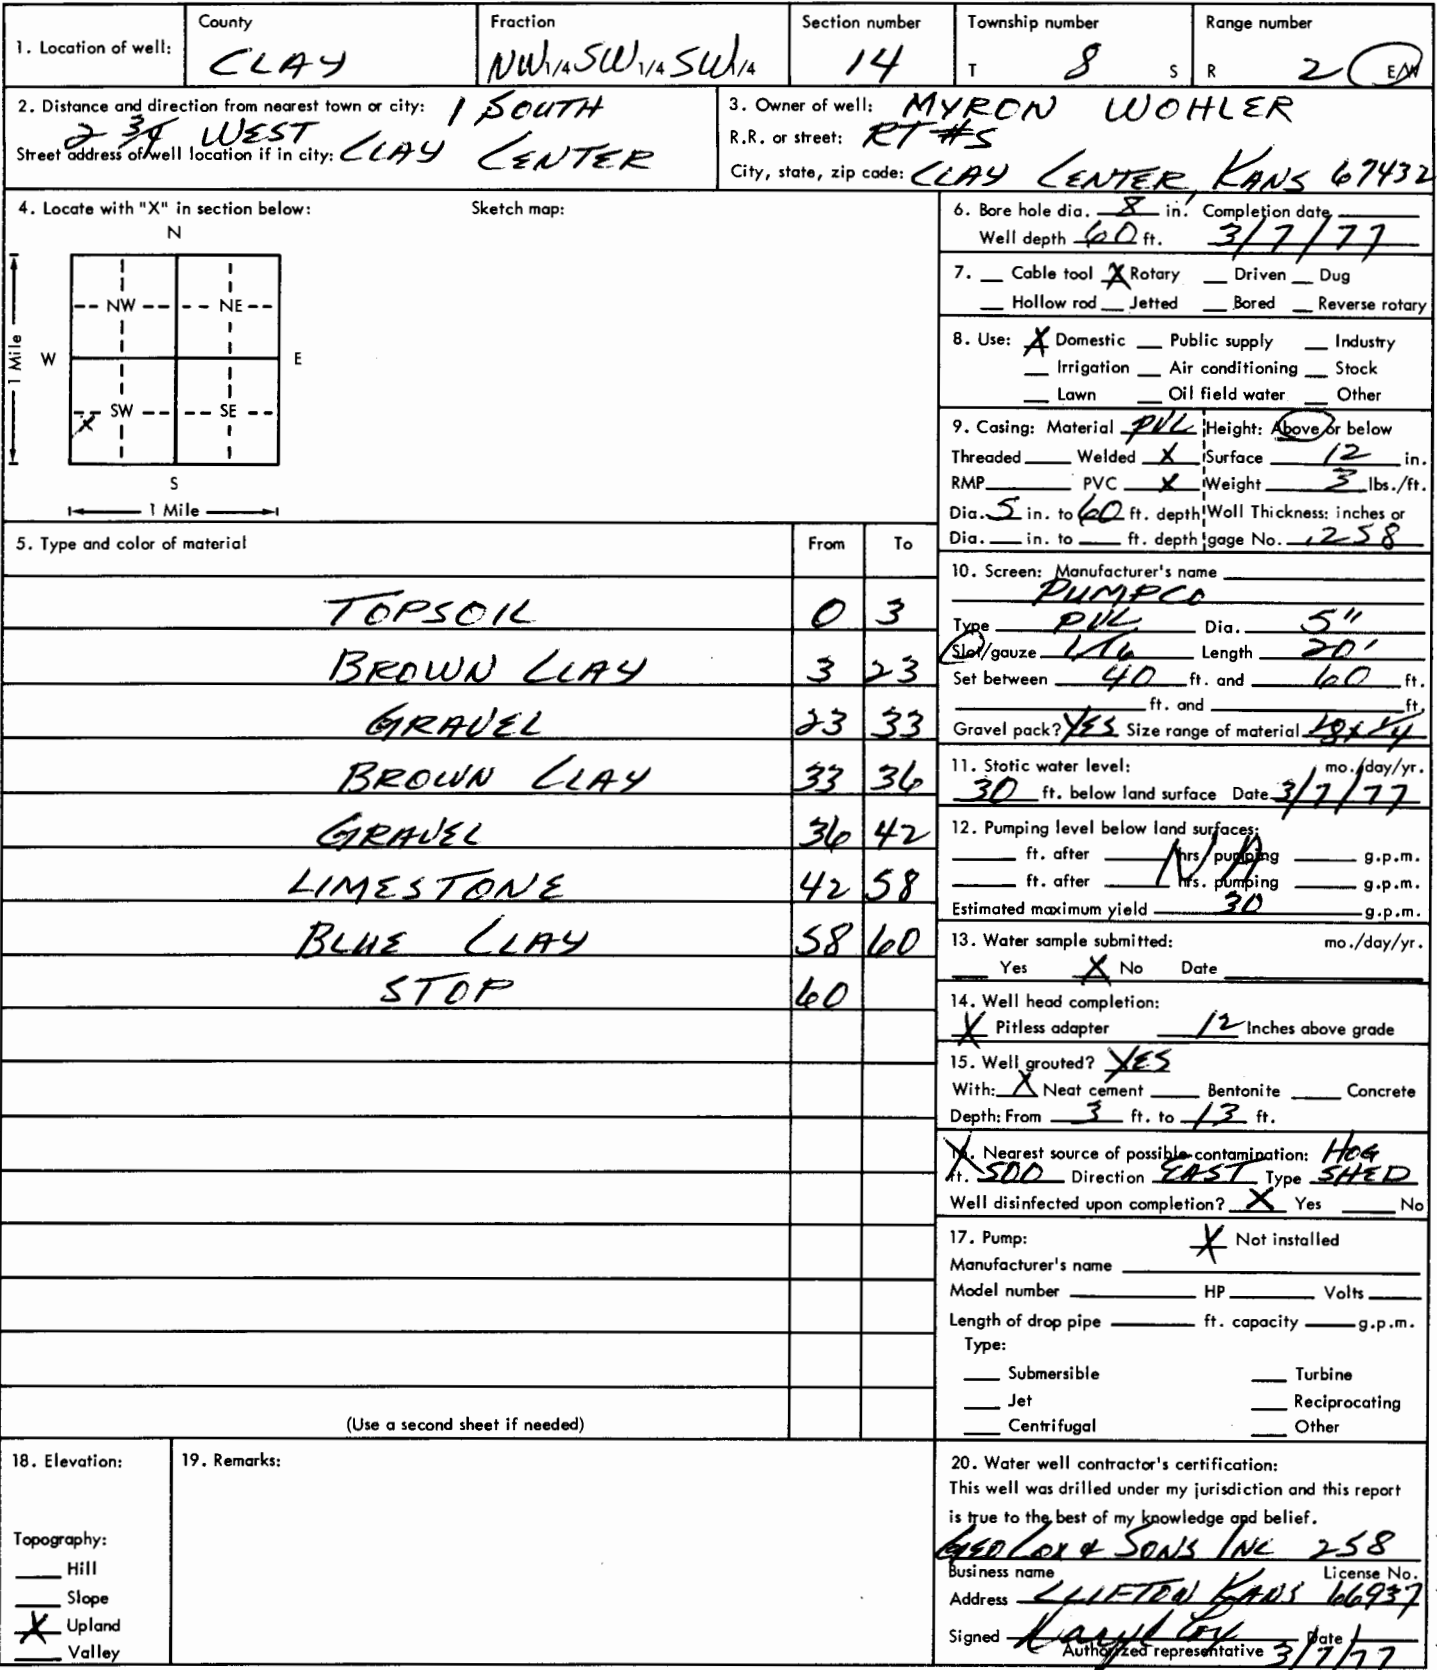 1. Location of well: County CLAY Fraction NW 1/4 SW 1/4 SW 1/4 Section number 14 Township number T 8 S Range number R 2 E/W
2. Distance and direction from nearest town or city: 1 SOUTH
2 3/4 WEST
Street address of well location if in city: CLAY CENTER
3. Owner of well: MYRON WOHLER
R.R. or street: RT #5
City, state, zip code: CLAY CENTER, KANS 67432
4. Locate with "X" in section below: Sketch map:
N
NW NE
W E
1 Mile
SW SE
X
S
1 Mile
5. Type and color of material From To
TOPSOIL 0 3
BROWN CLAY 3 23
GRAVEL 23 33
BROWN CLAY 33 36
GRAVEL 36 42
LIMESTONE 42 58
BLUE CLAY 58 60
STOP 60
(Use a second sheet if needed)
6. Bore hole dia. 8 in. Completion date
Well depth 60 ft. 3/7/77
7. Cable tool X Rotary Driven Dug
Hollow rod Jetted Bored Reverse rotary
8. Use: X Domestic Public supply Industry
Irrigation Air conditioning Stock
Lawn Oil field water Other
9. Casing: Material PVC Height: Above or below
Threaded Welded X Surface 12 in.
RMP PVC X Weight 3 lbs./ft.
Dia. 5 in. to 60 ft. depth Woll Thickness: inches or
Dia. in. to ft. depth gage No. .258
10. Screen: Manufacturer's name
PUMPCO
Type PVC Dia. 5"
Slot/gauze 1/16 Length 20'
Set between 40 ft. and 60 ft.
ft. and ft.
Gravel pack? YES Size range of material 1/8 x 1/4
11. Stotic water level: mo./day/yr.
30 ft. below land surface Date 3/7/77
12. Pumping level below land surfaces:
ft. after hrs. pumping g.p.m.
NA
ft. after hrs. pumping g.p.m.
Estimated maximum yield 30 g.p.m.
13. Water sample submitted: mo./day/yr.
Yes X No Date
14. Well head completion:
X Pitless adapter 12 Inches above grade
15. Well grouted? YES
With: X Neat cement Bentonite Concrete
Depth: From 3 ft. to 13 ft.
16. Nearest source of possible contamination: HOG
ft. 500 Direction EAST Type SHED
Well disinfected upon completion? X Yes No
17. Pump: X Not installed
Manufacturer's name
Model number HP Volts
Length of drop pipe ft. capacity g.p.m.
Type:
Submersible Turbine
Jet Reciprocating
Centrifugal Other
18. Elevation:
Topography:
Hill
Slope
X Upland
Valley
19. Remarks:
20. Water well contractor's certification:
This well was drilled under my jurisdiction and this report
is true to the best of my knowledge and belief.
GEO COX & SONS INC 258
Business name License No.
Address CLIFTON KANS 66937
Signed Cox Date
Authorized representative 3/7/77